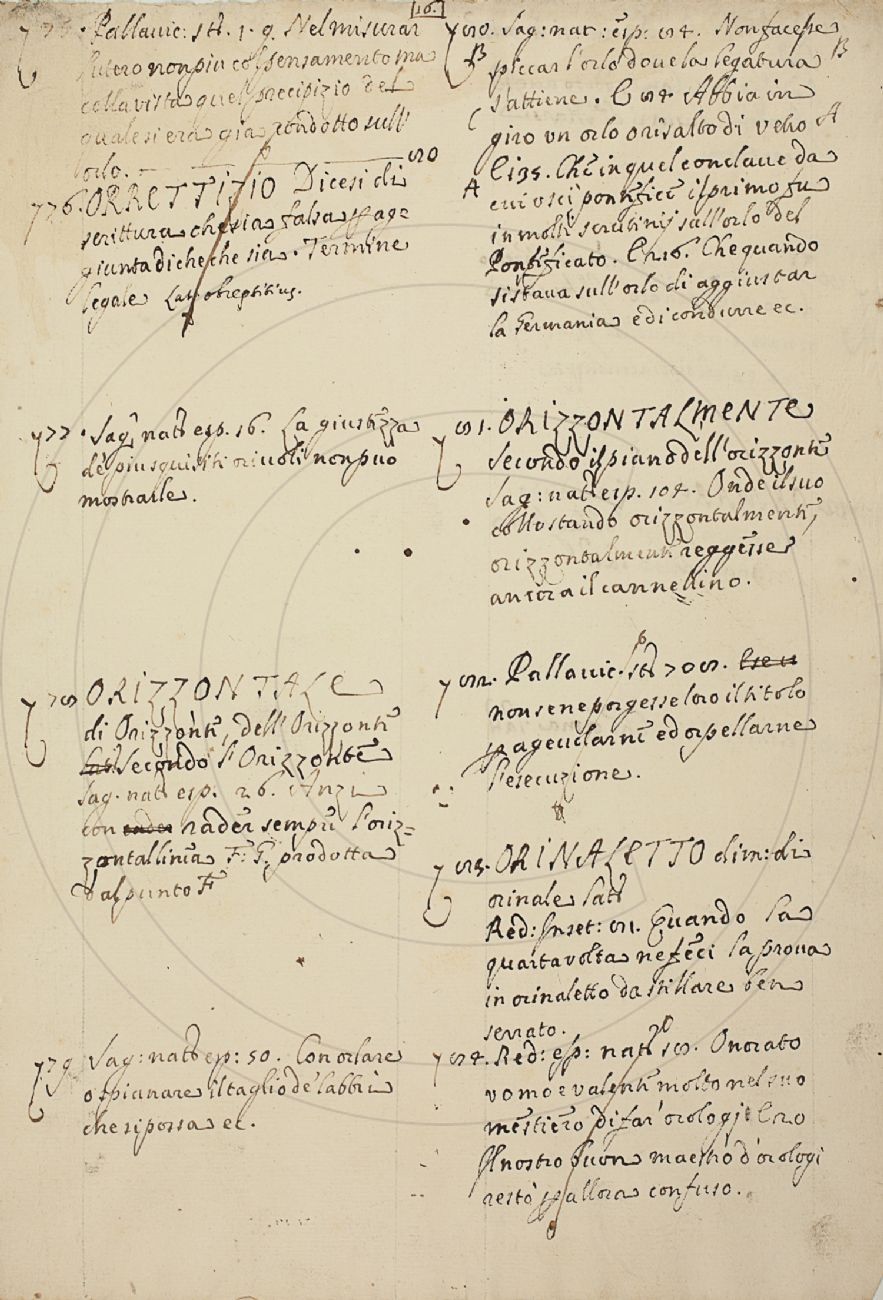 [16.]
775. Pallavic: stil. 1. 9. Nel misurar
l'utero non più col pensamento ma
colla vista quel precipizio del
quale si era già condotto sull'
orlo.
776. ORRETTIZIO Dicesi di
scrittura che sia falsa p ag=
giunta di che che sia. Termine
legale Lat: obreptitius.
777. Sag. nat. esp. 16. La giustezza
de' più squisiti orivoli non può
mostrarle.
778 ORIZZONTALE
di Orizzonte, dell'Orizzonte
Secondo l'Orizzonte
Sag. nat. esp. 26. Anzi
con rader sempre l'oriz=
zontal linea F. G. prodotta
dal punto F
779 Sag: nat: esp: 50. Con orlare
o spianare il taglio de' labbri
che si possa ec.
780. Sag: nat: esp: 84. Non facesse
B spiccar l'orlo dove la legatura B
s'attiene. E 84 Abbia in
C giro un orlo o risalto di vetro A
E 135. Che in quel conclave da
A cui uscì pontefice il primo fu
in molti scrutinij sull'orlo del
Pontificato. E 216. Che quando
si stava sull'orlo di aggiustar
la Germania e di condurre ec.
781. ORIZZONTALMENTE
Secondo il piano dell'orizzonte
Sag: nat: esp. 104. Onde il suo
collo stando orizzontalmente,
orizzontalmente reggesse
ancora il cannellino.
782. Pallavic. stil. 708.
non se ne porgesse loro il titolo
p agevolarne ed orpellarne
l'esecuzione.
783. ORINALETTO dim: di
orinale Lat:
Red: Inset: 81. Quando la
quarta volta ne feci la prova
in orinaletto da stillare ben
serrato.
784. Red: esp: nat: 58. Onorato
uomo e valente molto nel suo
mestiero di far orologj E 20
Il nostro buon maestro d'orologi
restò p allora confuso.